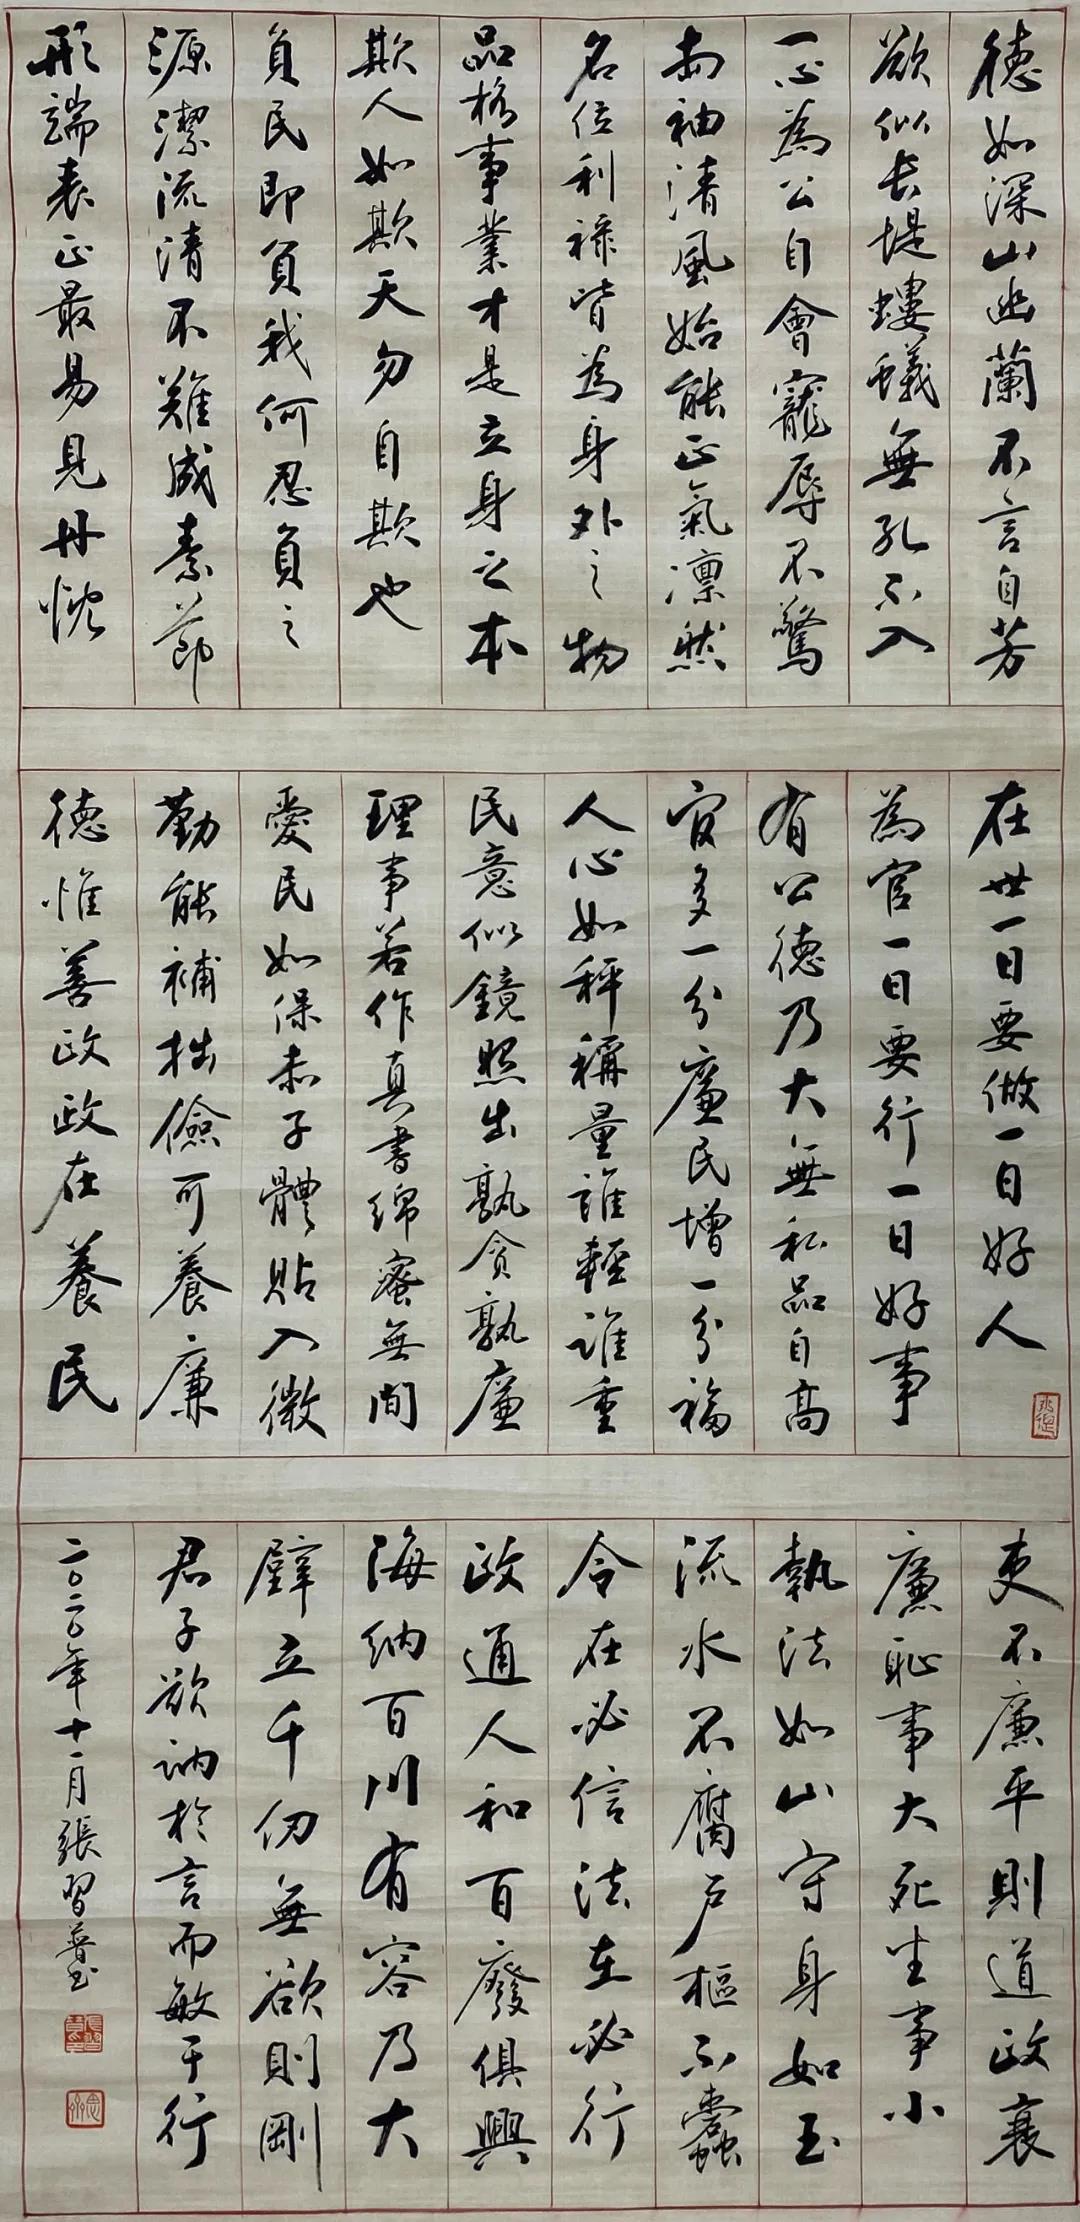 德如深山幽蘭不言自芳
欲似長堤螻蟻無孔不入
一心為公自會寵辱不驚
兩袖清風始能正氣凛然
名位利祿皆為身外之物
品格事業才是立身之本
欺人如欺天勿自欺也
負民即負我何忍負之
源潔流清不難成素節
形端表正最易見丹忱
在世一日要做一日好人
為官一日要行一日好事
有公德乃大無私品自高
官多一分廉民增一分福
人心如秤稱量誰輕誰重
民意似鏡照出孰貪孰廉
理事若作真書綿蜜無間
愛民如保赤子體貼入微
勤能補拙儉可養廉
德惟善政政在養民
吏不廉平則道政衰
廉恥事大死生事小
執法如山守身如玉
流水不腐戶樞不蠹
令在必信法在必行
政通人和百廢俱興
海納百川有容乃大
壁立千仞無欲則剛
君子欲訥於言而敏于行
二〇二〇年十一月張習